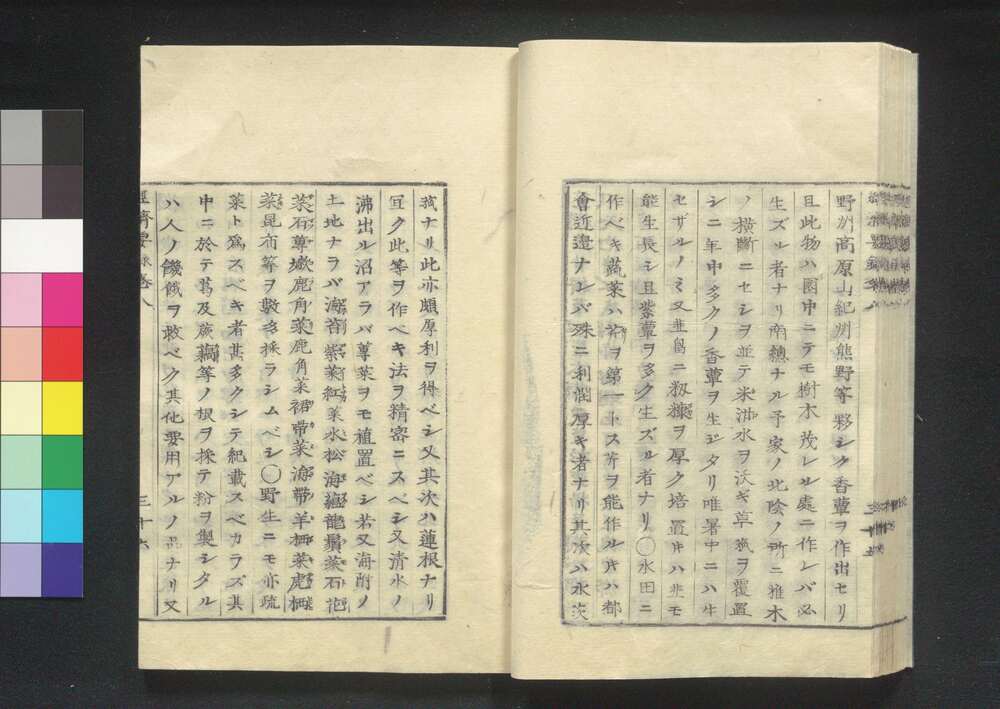 野州高原山紀州熊野等夥シク香蕈ヲ作出セリ
且此物ハ國中ニテモ樹木茂レル處ニ作レバ必
生ズル者ナリ南總ナル予家ノ北陰ノ所ニ雜木
ノ橫斷ニセシヲ並テ米泔水ヲ沃ギ草薦ヲ覆置
シニ年中多クノ香蕈ヲ生ジタリ唯暑中ニハ生
セザルノミ又韮畠ニ籾糠ヲ厚ク培置キハ韮モ
能生長シ且紫蕈ヲ多ク生ズル者ナリ〇水田ニ
作ベキ蔬菜ハ芹ヲ第一トス芹ヲ能作ルキハ都
會近邊ナレバ殊ニ利潤厚キ者ナリ其次ハ水茨
菰ナリ此亦頗厚利ヲ得ベシ又其次ハ蓮根ナリ
宜ク此等ヲ作ベキ法ヲ精密ニスベシ又清水ノ
沸出ル沼アラバ蓴菜ヲモ植置ベシ若又海附ノ
土地ナラバ海苔紫菜紅菜水松海蘊龍鬚菜石花
菜石蓴鹿角菜鹿角菜裙帶菜海帶羊栖菜虎栖
菜昆布等ヲ數多採ラシムベシ〇野生ニモ亦疏
菜ト爲スベキ者甚多クシテ紀載スベカラズ其
中ニ於テ葛及蕨等ノ根ヲ採テ粉ヲ製シタル
ハ人ノ饑餓ヲ救ベク其他要用アルノ品ナリ又
經濟要錄卷八
三十六